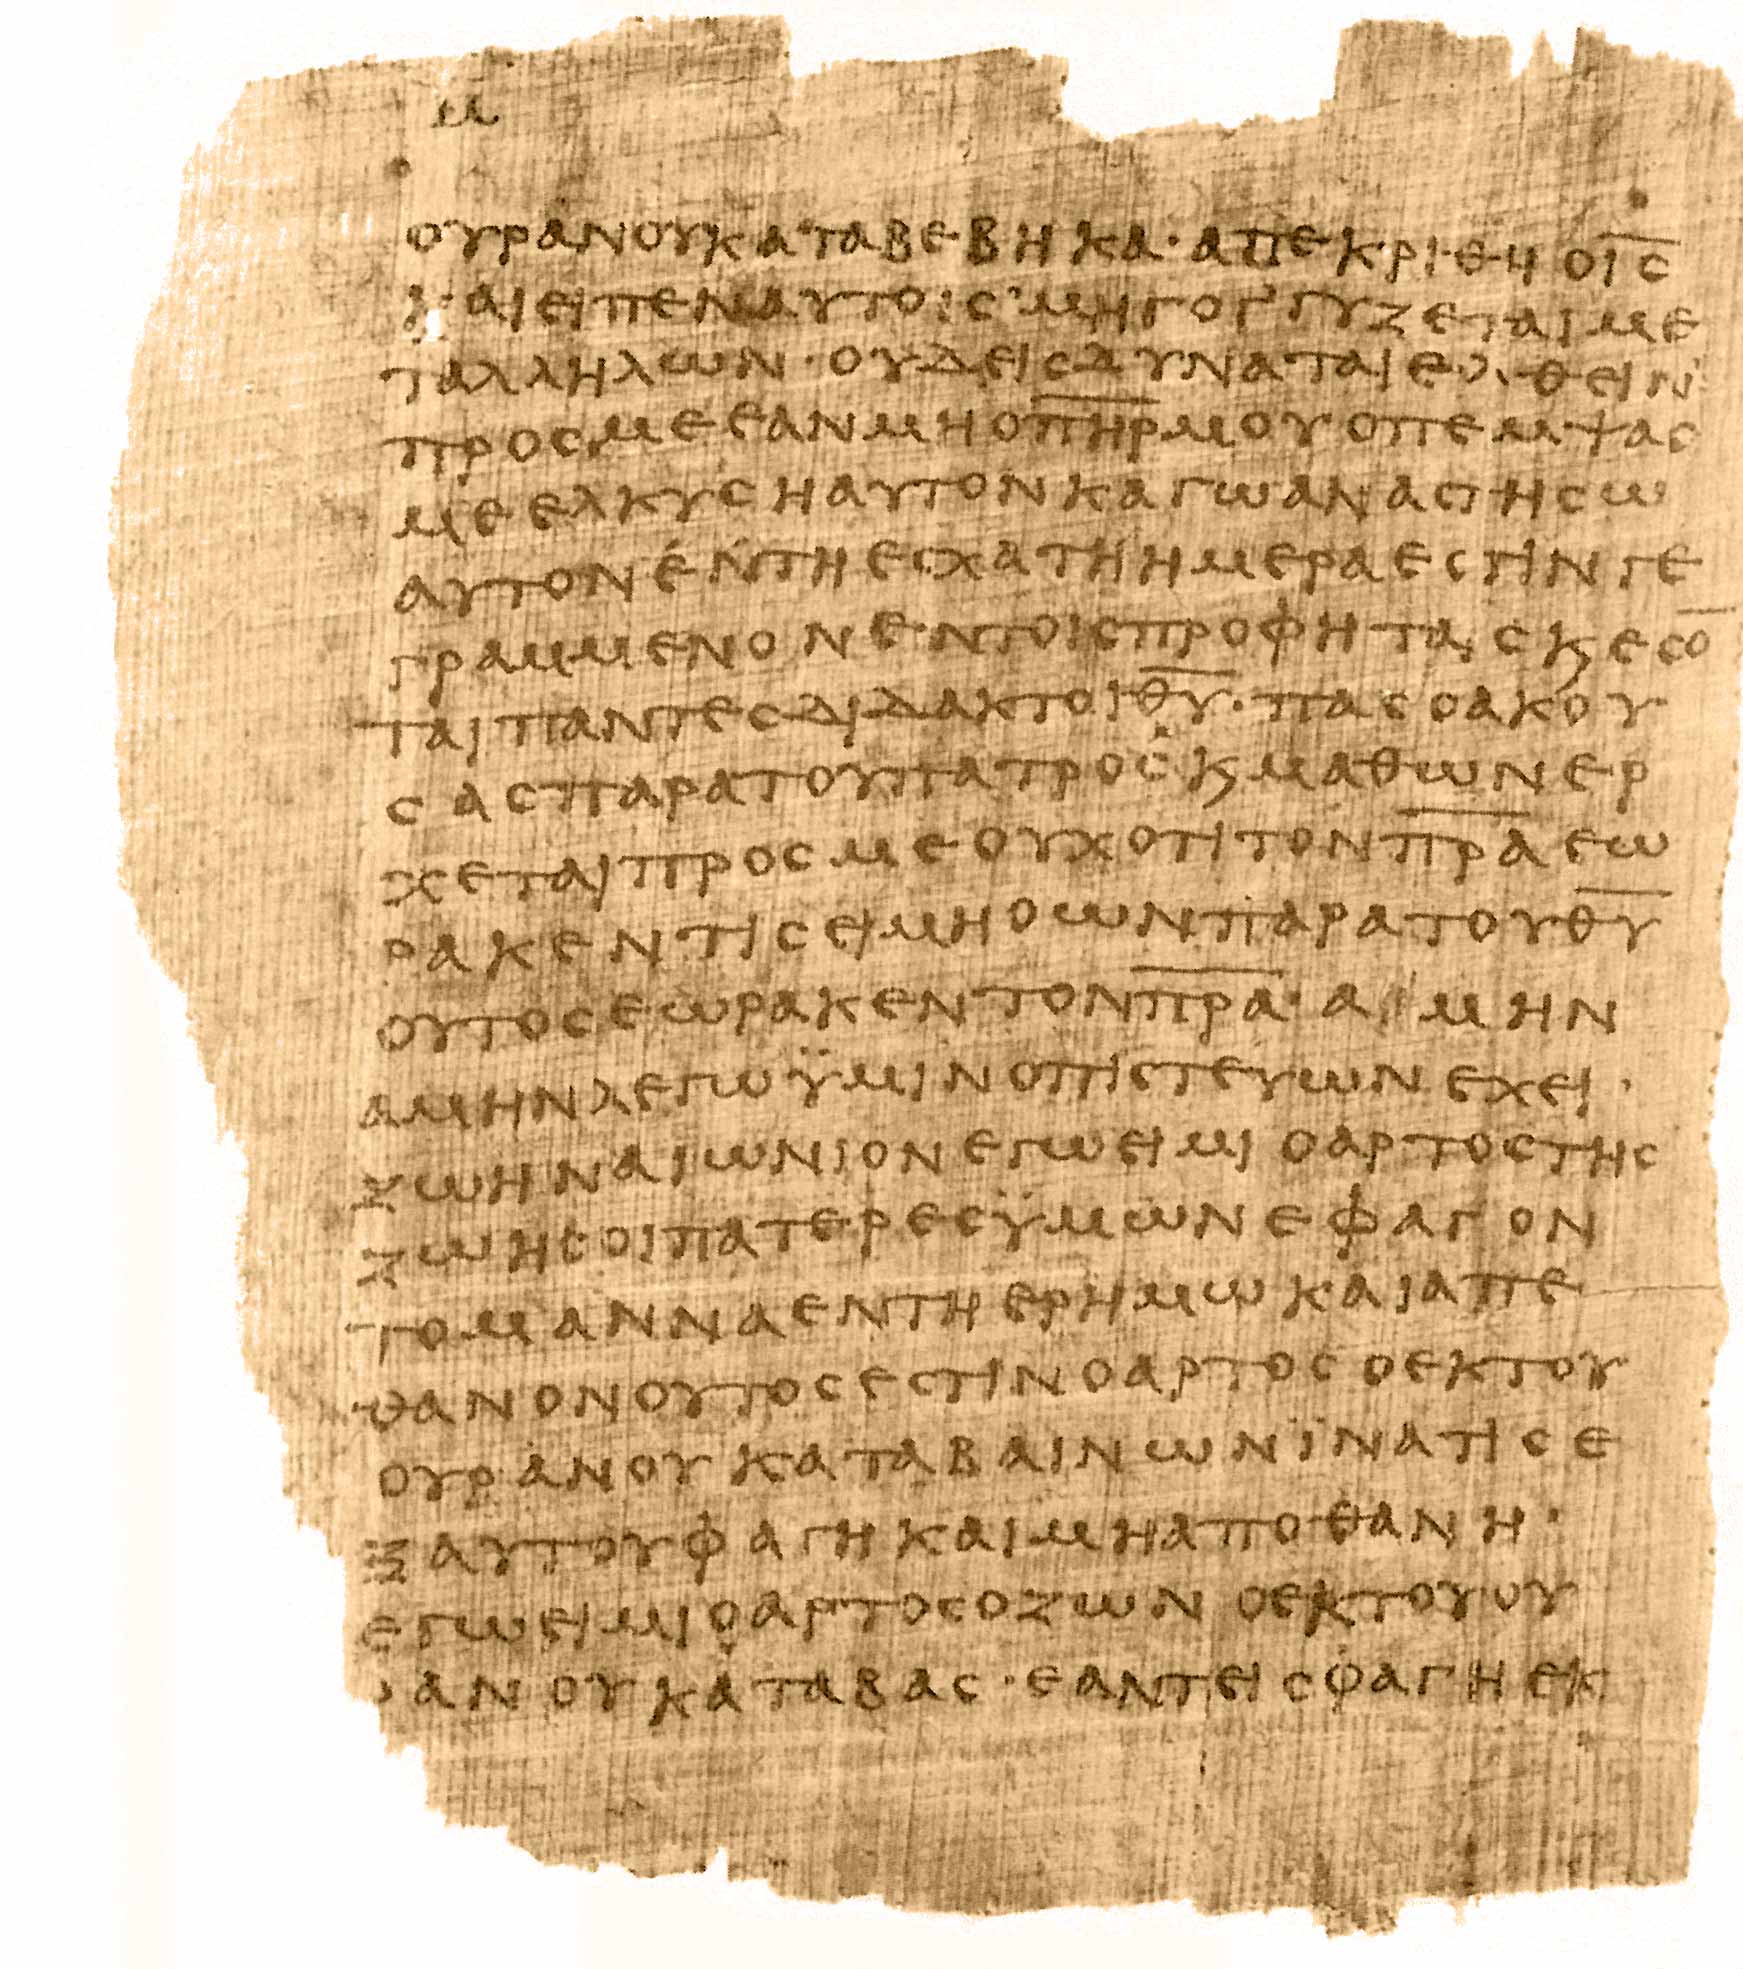 μ
ουρανουκαταβεβηκα· απεκριθη οι̅ς̅
καιειπεναυτοις· μηγογ᾽γυζεταιμε
ταλληλων· ουδεισδυναταιελθειν
προσμεεανμηοπ̅η̅ρ̅μουοπεμψας
μεελκυσηαυτονκαγωαναστησω
αυτονεντηεσχατηημεραεστινγε
γραμμενονεντοισπροφηταισκ̣εσο̅
ταιπαντεσδιδακτοιθ̅υ̅· πασοακου
σασπαρατουπατροσκ̣μαθωνερ
χεταιπροσμεουχοτιτονπ̅ρ̅α̅εω
ρακεντισειμηοωνπαρατουθ̅υ̅
ουτοσεωρακεντονπ̅ρ̅α̅· αμην
αμηνλεγωϋμινοπιστευωνεχει·
ζωηναιωνιονεγωειμιοαρτοστης
ζωησοιπατερεσϋμωνεφαγον
τομανναεντηερημωκαιαπε
θανονουτοσεστινοαρτοσοεκτου
ουρανουκαταβαινωνϊνατισε
ξαυτουφαγηκαιμηαποθανη·
εγωειμιοαρτοσοζωνοεκτουου
ρανουκαταβας· εαντεισφαγηεκ